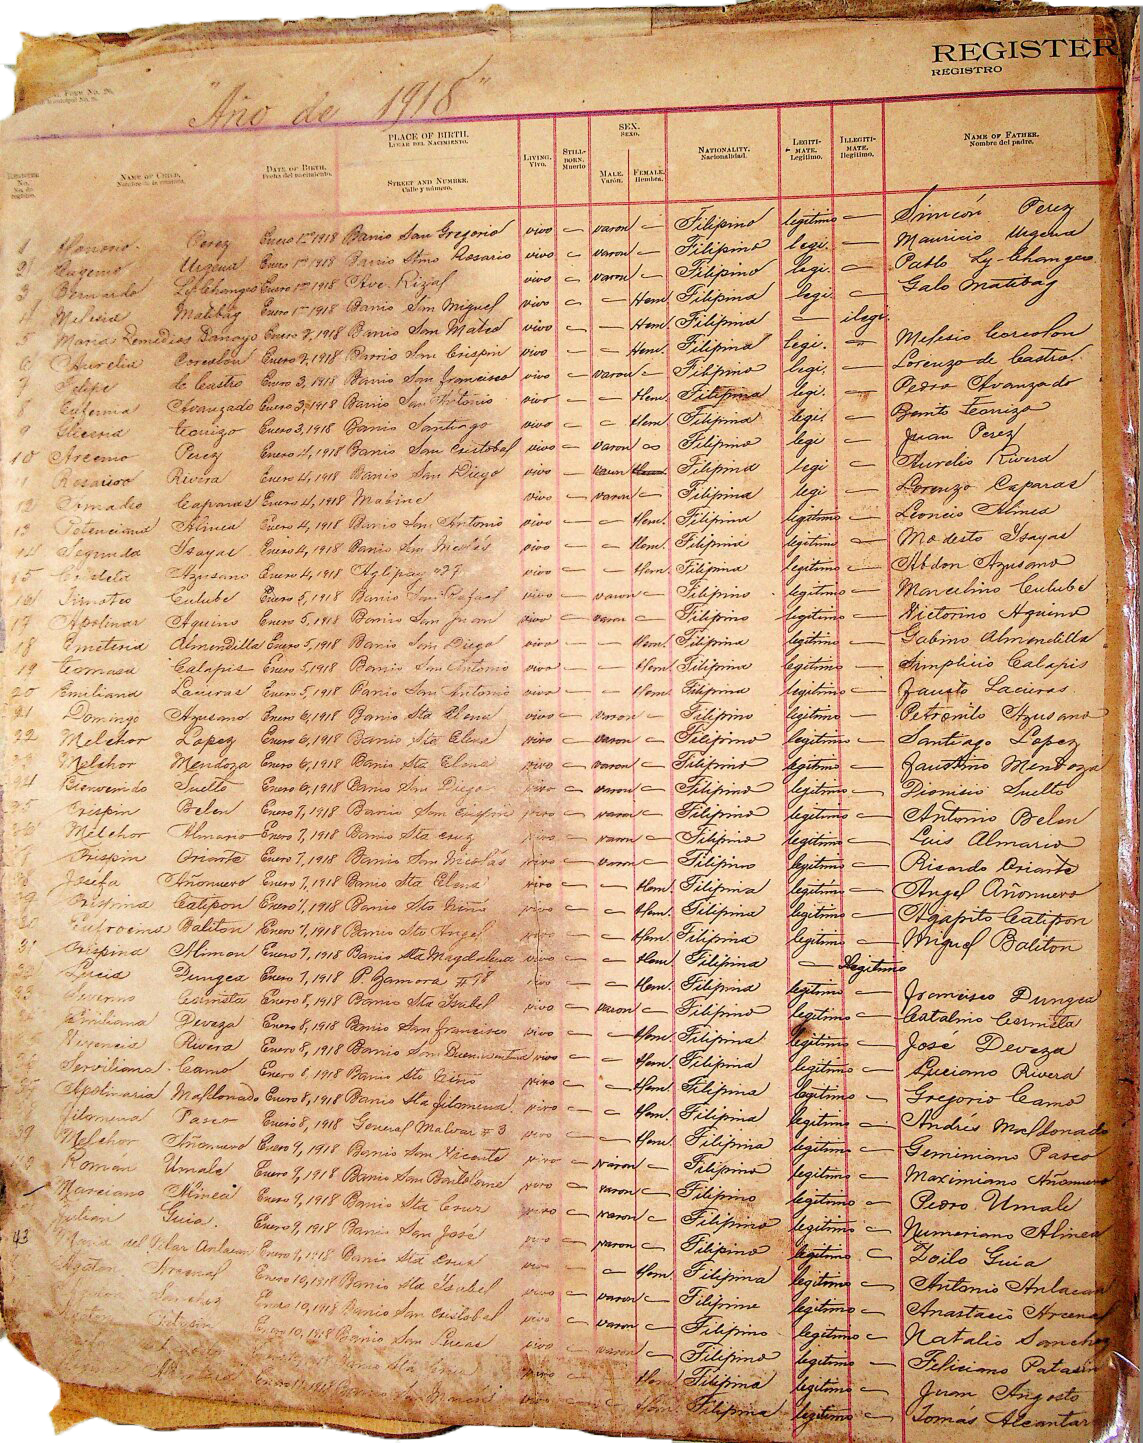 REGISTER
REGISTRO
"Año de 1918"
NAME OF CHILD. DATE OF BIRTH. Fecha del nacimiento. PLACE OF BIRTH. LUGAR DEL NACIMIENTO. STREET AND NUMBER. Calle y número. LIVING. Vivo. STILL-BORN. Muerto SEX. SEXO. MALE. Varón. FEMALE. Hembra. NATIONALITY. Nacionalidad. LEGITI-MATE. Legitimo. ILLEGITI-MATE. Ilegitimo. NAME OF FATHER. Nombre del padre.
1 Perez Enero 1ro 1918 Barrio San Gregorio vivo — varon — Filipino legitimo — Simeón Perez
2 Eugenio Urgena Enero 1ro 1918 Barrio Stmo Rosario vivo — varon — Filipino legi. — Mauricio Urgena
3 Bernardo Ly-Changco Enero 1ro 1918 Ave. Rizal vivo — varon — Filipino legi. — Pablo Ly-Changco
4 Melecia Matibag Enero 1ro 1918 Barrio San Miguel vivo — — Hem. Filipina legi. — Galo Matibag
5 Maria Remedios Enero 2, 1918 Barrio San Mateo vivo — — Hem. Filipina — ilegi.
6 Aurelia Corcolon Enero 2, 1918 Barrio San Crispin vivo — — Hem. Filipina legi. — Melesio Corcolon
7 Felipe de Castro Enero 3, 1918 Barrio San Francisco vivo — varon — Filipino legi. — Lorenzo de Castro
8 Eufemia Avanzado Enero 3, 1918 Barrio San Antonio vivo — — Hem. Filipina legi. — Pedro Avanzado
9 Gliceria Enero 3, 1918 Barrio Santiago vivo — — Hem. Filipina legi — Benito
10 Arcenio Perez Enero 4, 1918 Barrio San Cristobal vivo — varon — Filipino legi — Juan Perez
11 Rosauro Rivera Enero 4, 1918 Barrio San Diego vivo — varon Hem. Filipina legi — Aurelio Rivera
12 Amadio Caparas Enero 4, 1918 Mabine vivo — varon — Filipina legi — Lorenzo Caparas
13 Potenciana Alinea Enero 4, 1918 Barrio San Antonio vivo — — Hem. Filipina legitimo — Leoncio Alinea
14 Segunda Ysayas Enero 4, 1918 Barrio San Nicolás vivo — — Hem. Filipina legitimo — Modesto Ysayas
15 Azusano Enero 4, 1918 Aglipay #27 vivo — — Hem. Filipina legitimo — Abdon Azusano
16 Timoteo Culube Enero 5, 1918 Barrio San Rafael vivo — varon — Filipino legitimo — Marcelino Culube
17 Apolinar Aquino Enero 5, 1918 Barrio San Juan vivo — varon — Filipino legitimo — Victorino Aquino
18 Emeteria Almendilla Enero 5, 1918 Barrio San Diego vivo — — Hem. Filipina legitimo — Gabino Almendilla
19 Tomasa Calapis Enero 5, 1918 Barrio San Antonio vivo — — Hem. Filipina legitimo — Simplicio Calapis
20 Emiliana Lacuras Enero 5, 1918 Barrio San Antonio vivo — — Hem. Filipina legitimo — Fausto Lacuras
21 Domingo Azusano Enero 6, 1918 Barrio Sta Elena vivo — varon — Filipino legitimo — Petronilo Azusano
22 Melchor Lopez Enero 6, 1918 Barrio Sta Elena vivo — varon — Filipino legitimo — Santiago Lopez
23 Melchor Mendoza Enero 6, 1918 Barrio Sta Elena vivo — varon — Filipino legitimo — Faustino Mendoza
24 Bienvenido Suelto Enero 6, 1918 Barrio San Diego vivo — varon — Filipino legitimo — Dionisio Suelto
25 Crispin Belen Enero 7, 1918 Barrio San Crispin vivo — varon — Filipino legitimo — Antonio Belen
26 Melchor Almario Enero 7, 1918 Barrio Sta Cruz vivo — varon — Filipino legitimo — Luis Almario
Crispin Oriarte Enero 7, 1918 Barrio San Nicolás vivo — varon — Filipino legitimo — Ricardo Oriarte
Josefa Añonuevo Enero 7, 1918 Barrio Sta Elena vivo — — Hem. Filipina legitimo — Angel Añonuevo
29 Crispina Catipon Enero 7, 1918 Barrio Sto Niño vivo — — Hem. Filipina legitimo — Agapito Catipon
30 Baliton Enero 7, 1918 Barrio Sto Angel vivo — — Hem. Filipina legitimo — Miguel Baliton
31 Crispina Alimon Enero 7, 1918 Barrio Sta Magdalena vivo — — Hem. Filipina — Ilegitimo
Lucia Dungca Enero 7, 1918 P. Zamora #18 vivo — — Hem. Filipina legitimo — Francisco Dungca
33 Severino Enero 8, 1918 Barrio Sta Isabel vivo — varon — Filipino legitimo — Catalino
Emiliana Deveza Enero 8, 1918 Barrio San Francisco vivo — — Hem. Filipina legitimo — Jose Deveza
Rivera Enero 8, 1918 Barrio San Buenaventura vivo — — Hem. Filipina legitimo — Luciano Rivera
36 Serviliana Camo Enero 8, 1918 Barrio Sto Niño vivo — — Hem. Filipina legitimo — Gregorio Camo
37 Apolinaria Maldonado Enero 8, 1918 Barrio Sta Filomena vivo — — Hem. Filipina legitimo — Andrés Maldonado
Filomena Pasco Enero 8, 1918 General Malvar #3 vivo — — Hem. Filipina legitimo — Geminiano Pasco
39 Melchor Añonuevo Enero 9, 1918 Barrio San Vicente vivo — varon — Filipino legitimo — Maximiano Añonuevo
Roman Umale Enero 9, 1918 Barrio San Bartolome vivo — varon — Filipino legitimo — Pedro Umale
Marciano Alinea Enero 9, 1918 Barrio Sta Cruz vivo — varon — Filipino legitimo — Numeriano Alinea
Julian Guia Enero 9, 1918 Barrio San José vivo — varon — Filipino legitimo — Zoilo Guia
43 del Pilar Anlacan Enero 9, 1918 Barrio Sta Cruz vivo — — Hem. Filipina legitimo — Antonio Anlacan
Agaton Arcenal Enero 10, 1918 Barrio Sta Isabel vivo — varon — Filipino legitimo — Anastacio Arcenal
Sanchez Enero 10, 1918 Barrio San Cristobal vivo — varon — Filipino legitimo — Natalio Sanchez
Enero 10, 1918 Barrio San Lucas vivo — varon — Filipino legitimo — Feliciano Patasin
vivo — — Hem. Filipina legitimo — Juan Angosto
vivo — — Hem. Filipina legitimo — Tomás Alcantara